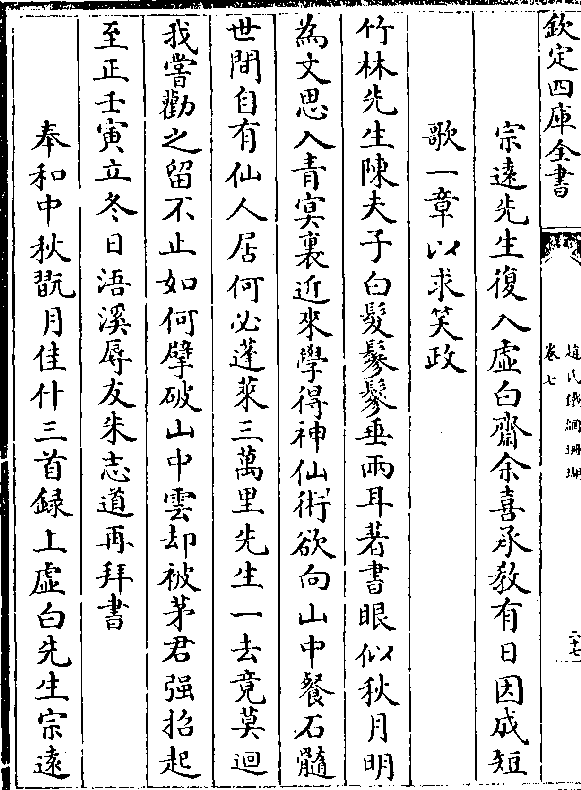 欽定四庫全書
趙氏鐵網珊瑚
卷七
二十七
宗遠先生復入虛白齋余喜承教有日因成短
歌一章以求笑政
竹林先生陳夫子白髮鬖鬖垂兩耳著書眼似秋月明
為文思入青冥裏近來學得神仙術欲向山中餐石髓
世間自有仙人居何必蓬萊三萬里先生一去竟莫迴
我嘗勸之留不止如何擘破山中雲却被茅君强招起
至正壬寅立冬日浯溪辱友朱志道再拜書
奉和中秋翫月佳什三首録上虛白先生宗遠